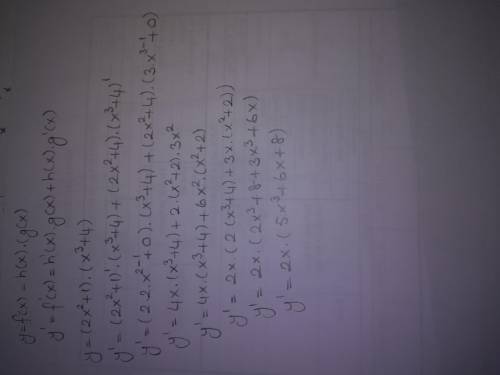 y=f(x) = h(x).(g(x)
y'=f'(x)=h'(x).g(x)+h(x).g'(x)
y=(2x²+1).(x³+4)
y'=(2x²+1)'.(x³+4)+(2x²+4).(x³+4)'
y'=(2.2.x²⁻¹+0).(x³+4)+(2x²+4).(3.x³⁻¹+0)
y'=4x.(x³+4)+2.(x²+2).3x²
y'=4x.(x³+4)+6x².(x²+2)
y'=2x.(2(x³+4)+3x.(x²+2))
y'=2x.(2x³+8+3x³+6x)
y'=2x.(5x³+6x+8)